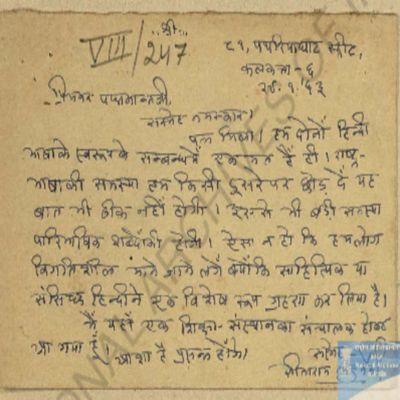 श्री
VIII/247
८९, पथरियाघाट स्ट्रीट,
कलकत्ता - ६
२८.१.'६३
प्रियवर
सस्नेह नमस्कार।
पत्र मिला। हम दोनों हिन्दी
भाषाके स्वरूपके सम्बन्धमें एकमत हैं ही। राष्ट्र-
भाषाकी समस्या हम किसी दूसरे पर छोड़ दें यह
बात भी ठीक नहीं होगी। इससे भी बड़ी समस्या
पारिभाषिक शब्दोंकी होगी। ऐसा न हो कि हमलोग
विगतिशील माने जाने लगें क्योंकि साहित्यिक या
हिन्दीने एक विशेष रूप ग्रहण कर लिया है।
मैं यहाँ एक शिक्षा-संस्थानका संचालक होकर
आ गया हूँ। आशा है प्रसन्न होंगे।
सस्नेह